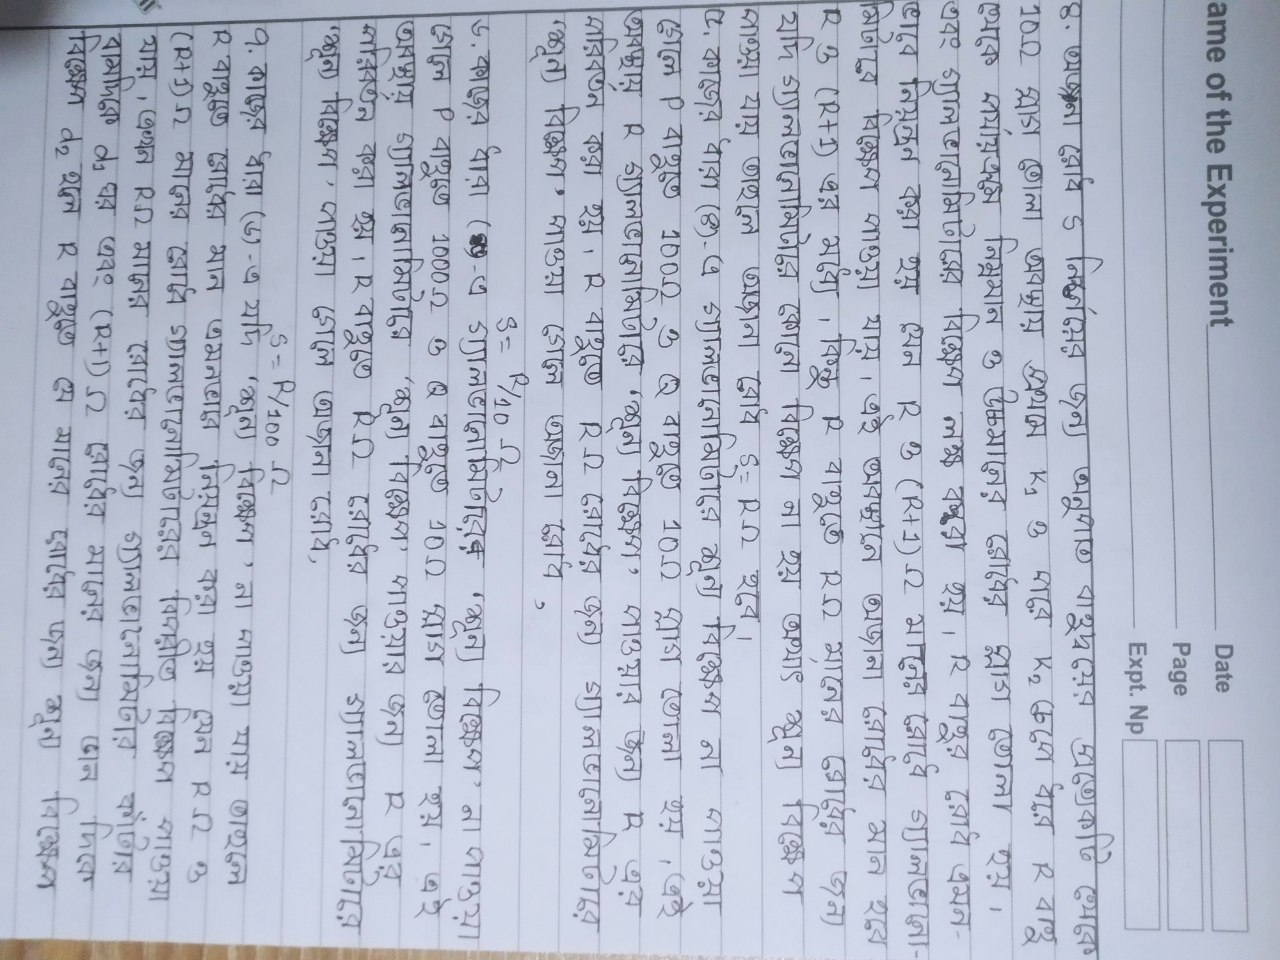 ame of the Experiment
Date
Page
Expt. Np
৪. অজানা রোধ S নির্ণয়ের জন্য অনুপাত বাহুদ্বয়ের প্রত্যেকটি থেকে
10Ω প্লাগ তোলা অবস্থায় প্রথমে K₁ ও পরে K₂ চেপে ধরে R বাহু
থেকে পর্যায়ক্রমে নিম্নমান ও উচ্চমানের রোধের প্লাগ তোলা হয়।
এবং গ্যালভানোমিটারের বিক্ষেপ লক্ষ্য করা হয়। R বাহুর রোধ এমন-
ভাবে নিয়ন্ত্রন করা হয় যেন R ও (R+1)Ω মানের রোধে গ্যালভানো-
মিটারে বিক্ষেপ পাওয়া যায়। এই অবস্থানে অজানা রোধের মান হবে
R ও (R+1) এর মধ্যে। কিন্তু R বাহুতে RΩ মানের রোধের জন্য
যদি গ্যালভানোমিটারে কোনো বিক্ষেপ না হয় অর্থাৎ শূন্য বিক্ষেপ
পাওয়া যায় তাহলে অজানা রোধ S = RΩ হবে।
৫. কাজের ধারা (৪)-এ গ্যালভানোমিটারে শূন্য বিক্ষেপ না পাওয়া
গেলে P বাহুতে 100Ω ও Q বাহুতে 10Ω প্লাগ তোলা হয়। এই
অবস্থায় R গ্যালভানোমিটারে 'শূন্য বিক্ষেপ' পাওয়ার জন্য R এর
পরিবর্তন করা হয়। R বাহুতে RΩ রোধের জন্য গ্যালভানোমিটারে
'শূন্য বিক্ষেপ' পাওয়া গেলে অজানা রোধ,
S = R/10 Ω
৬. কাজের ধারা (৫)-এ গ্যালভানোমিটারে 'শূন্য বিক্ষেপ' না পাওয়া
গেলে P বাহুতে 1000Ω ও Q বাহুতে 10Ω প্লাগ তোলা হয়। এই
অবস্থায় গ্যালভানোমিটারে 'শূন্য বিক্ষেপ' পাওয়ার জন্য R এর
পরিবর্তন করা হয়। R বাহুতে RΩ রোধের জন্য গ্যালভানোমিটারে
'শূন্য বিক্ষেপ' পাওয়া গেলে অজানা রোধ,
S = R/100 Ω
৭. কাজের ধারা (৬)-এ যদি 'শূন্য বিক্ষেপ' না পাওয়া যায় তাহলে
R বাহুতে রোধের মান এমনভাবে নিয়ন্ত্রন করা হয় যেন RΩ ও
(R+1)Ω মানের রোধে গ্যালভানোমিটারের বিপরীত বিক্ষেপ পাওয়া
যায়। এখন RΩ মানের রোধের জন্য গ্যালভানোমিটার কাঁটার
বামদিকে d₁ ঘর এবং (R+1)Ω রোধের মানের জন্য ডান দিকে
বিক্ষেপ d₂ হলে R বাহুতে যে মানের রোধের জন্য শূন্য বিক্ষেপ